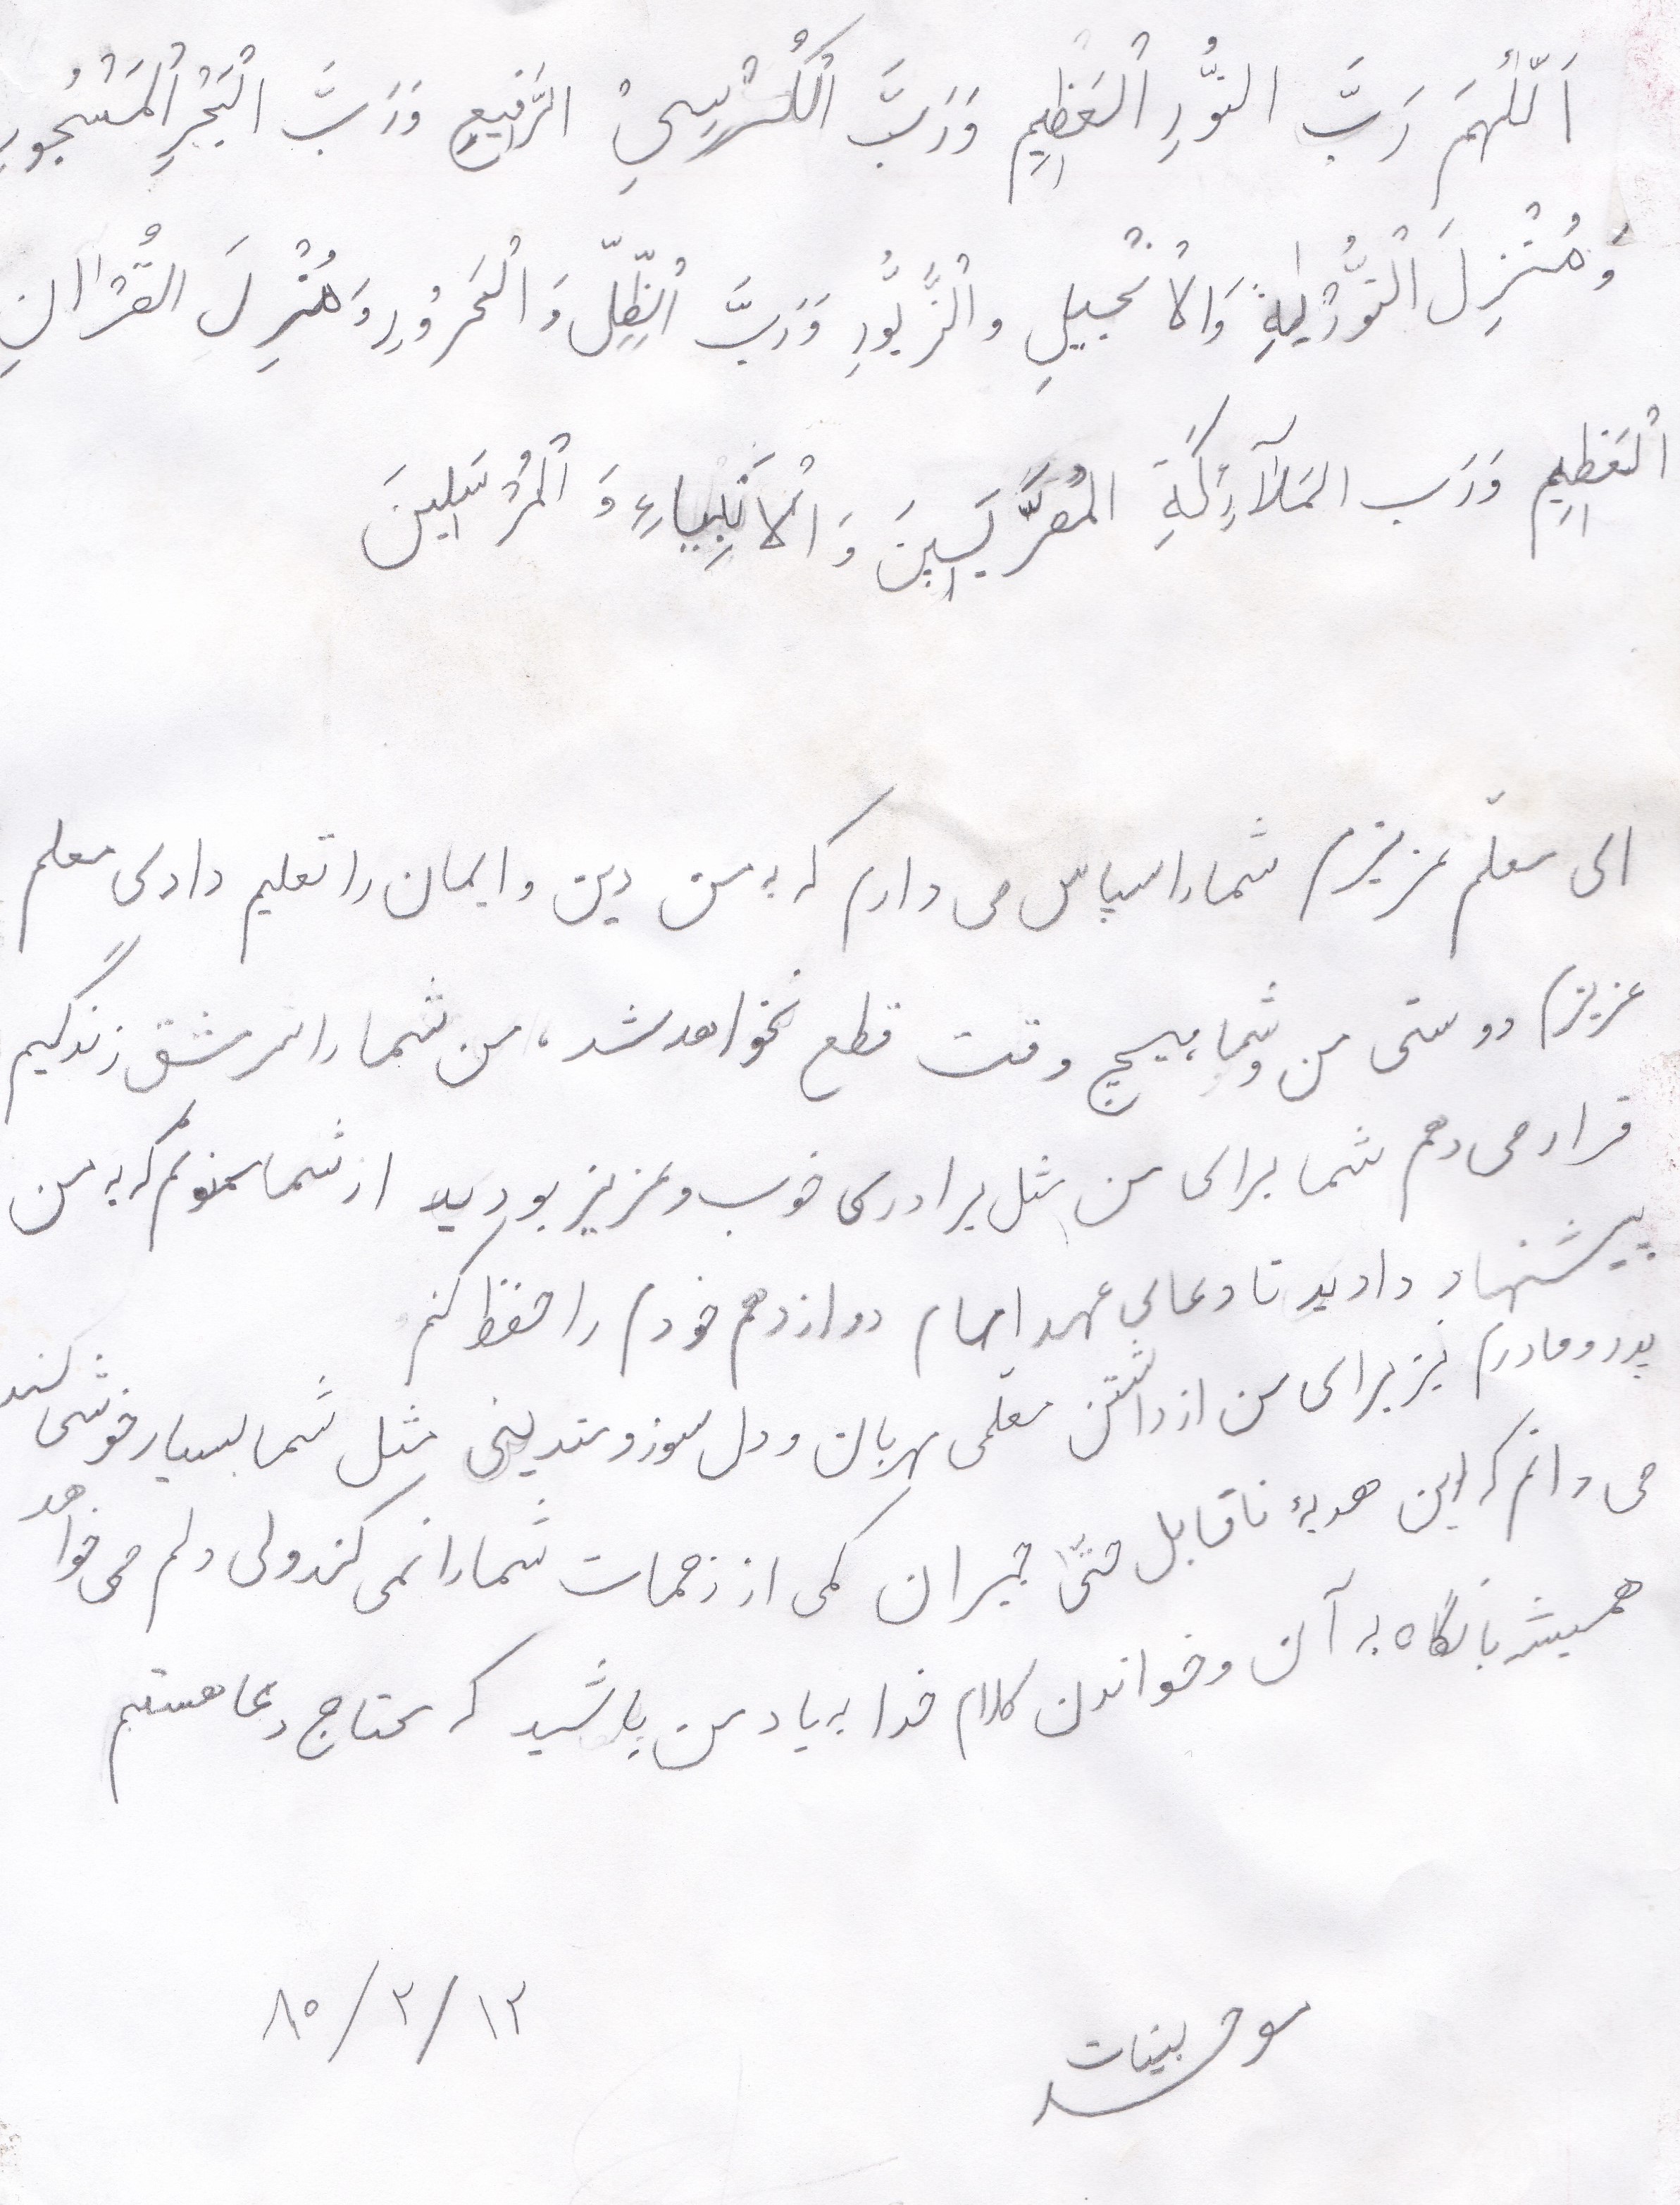 اَللّهُمَ رَبَّ النُّورِ الْعَظِيمِ وَرَبَّ الْكُرْسِيِ الرَّفِيعِ وَرَبَّ الْبَحْرِ الْمَسْجُورِ
وَ مُنْزِلَ التَّوْرٰیةِ وَالاْنْجیلِ والْزَّبُورِ وَرَبَّ الْظِّلِّ وَ الْحَرُورِ وَ مُنْزِلَ القُرْانِ
الْعَظِیمِ وَرَب المَلآئِكَةِ المُقَرَّبینَ وَ الْاَنْبِیاءِ وَ الْمُرْسَلینَ
ای معلّم عزیزم شما را سپاس می دارم که به من دین و ایمان را تعلیم دادی معلم
عزیزم دوستی من و شما هیچ وقت قطع نخواهد شد، من شما را سرمشق زندگیم
قرار می دهم شما برای من مثل برادری خوب و عزیز بودید از شما ممنونم که به من
پیشنهاد دادید تا دعای عهد امام دوازدهم خودم را حفظ کنم
پدر و مادرم نیز برای من از داشتن معلّمی مهربان و دل سوز و متدینی مثل شما بسیار خوشی کنند
می دانم که این هدیهٔ ناقابل حتّی جبران کمی از زحمات شما را نمی کند ولی دلم می خواهد
همیشه با نگاه به آن و خواندن کلام خدا به یاد من باشید که محتاج دعا هستیم
موحد بینات
۸۵/۲/۱۲